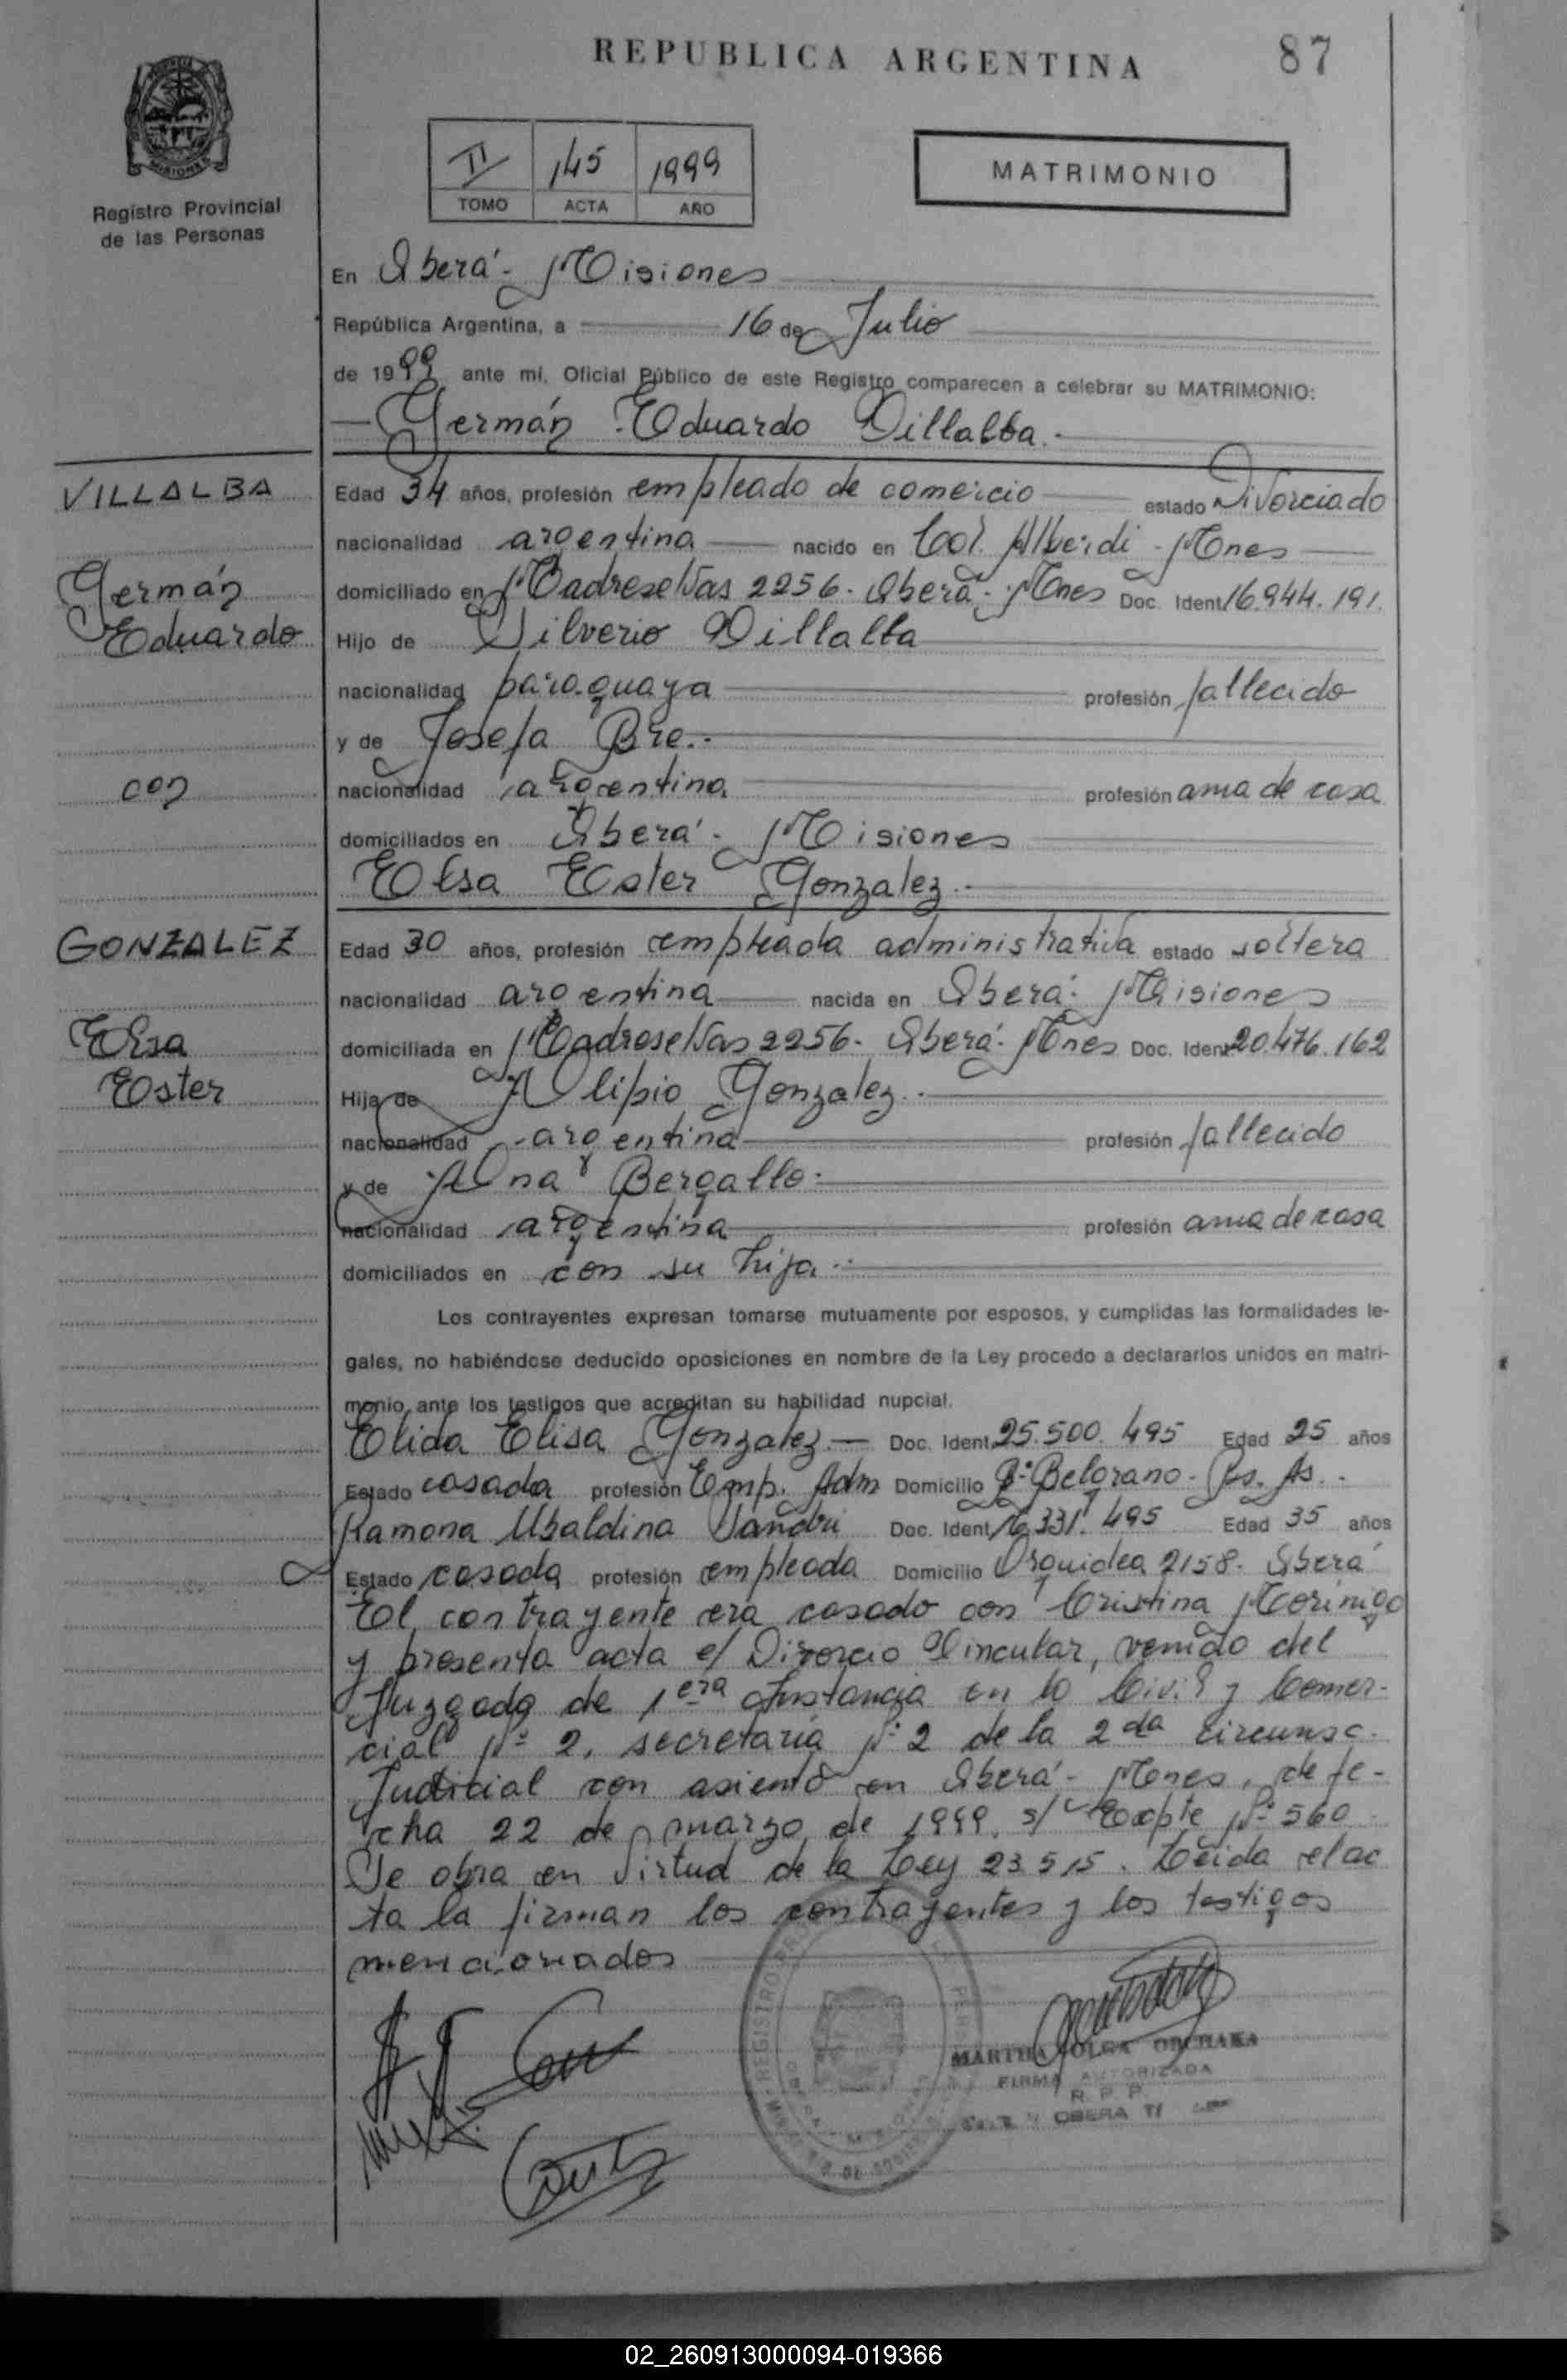 REPUBLICA ARGENTINA
87
Registro Provincial
de las Personas
II 145 1999
TOMO ACTA AÑO
MATRIMONIO
En Oberá - Misiones
República Argentina, a 16 de Julio
de 1999 ante mí, Oficial Público de este Registro comparecen a celebrar su MATRIMONIO:
Germán Eduardo Villalba.-
VILLALBA
Germán
Eduardo
con
GONZALEZ
Elsa
Ester
Edad 34 años, profesión empleado de comercio estado Divorciado
nacionalidad argentina nacido en Col. Alberdi - Mnes
domiciliado en Madreselvas 2256 - Oberá - Mnes Doc. Ident 16.944.191.
Hijo de Silverio Villalba
nacionalidad paraguaya profesión fallecido
y de Josefa Bre.-
nacionalidad argentina profesión ama de casa
domiciliados en Oberá - Misiones
Elsa Ester Gonzalez.-
Edad 30 años, profesión empleada administrativa estado soltera
nacionalidad argentina nacida en Oberá - Misiones
domiciliada en Madreselvas 2256 - Oberá - Mnes Doc. Ident 20.476.162
Hija de Alipio Gonzalez.-
nacionalidad argentina profesión fallecido
y de Ana Bergallo.-
nacionalidad argentina profesión ama de casa
domiciliados en con su hija.-
Los contrayentes expresan tomarse mutuamente por esposos, y cumplidas las formalidades le-
gales, no habiéndose deducido oposiciones en nombre de la Ley procedo a declararlos unidos en matri-
monio ante los testigos que acreditan su habilidad nupcial.
Elida Elisa Gonzalez.- Doc. Ident 25.500.495 Edad 25 años
Estado casada profesión Emp. Adm Domicilio Bº Belgrano - Bs. As.-
Ramona Ubaldina Doc. Ident 16.331.495 Edad 35 años
Estado casada profesión empleada Domicilio Orquidea 2158 - Oberá
El contrayente era casado con Cristina Morinigo
y presenta acta c/ Divorcio Vincular, venido del
Juzgado de 1era Instancia en lo Civil y Comer-
cial Nº 2, secretaría Nº 2 de la 2da circunsc.
Judicial con asiento en Oberá - Mnes, de fe-
cha 22 de marzo de 1999. s/ Expte Nº 560
Se obra en virtud de la Ley 23515. Leida el ac
ta la firman los contrayentes y los testigos
mencionados
MARTHA OLGA
FIRMA AUTORIZADA
R. P. P.
OBERA
02_260913000094-019366